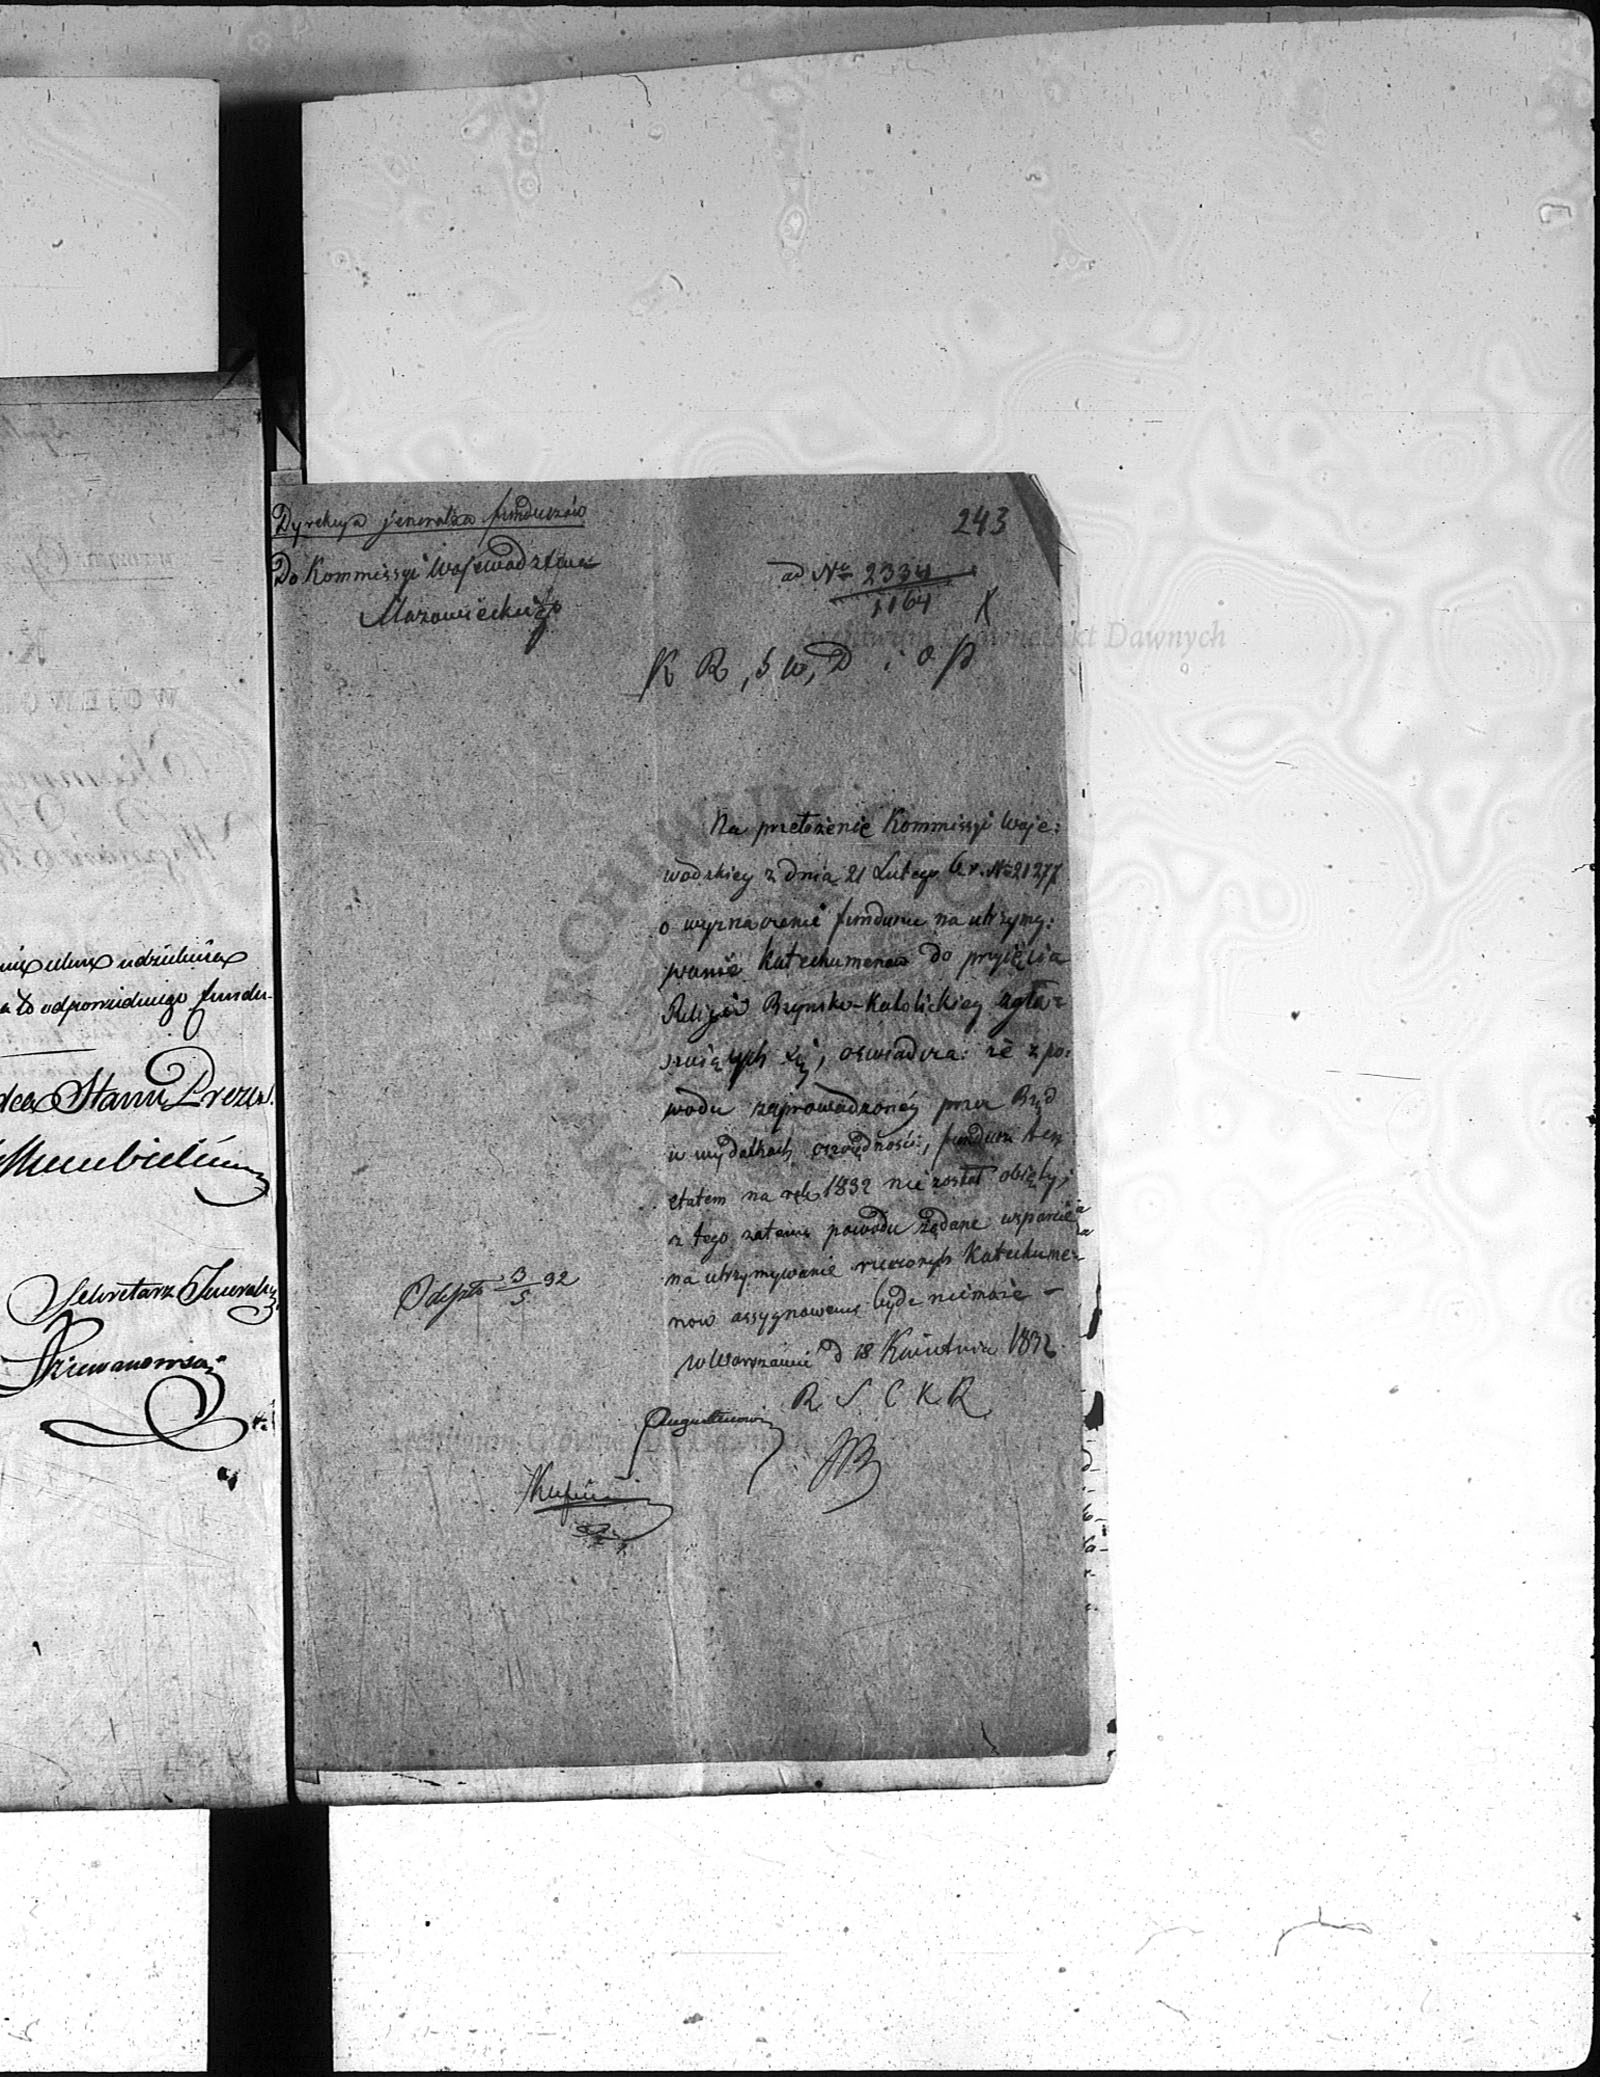 Dyrekcya jeneralna funduszów
Do Kommissyi Wojewodztwa
Mazowieckiego
243
ad No 2334
1164
K R, S W, D i O P
Na przełożenie Kommissyi Woje:
wodzkiey z dnia 21 Lutego b. r. No 21277
o wyznaczenie funduszu na utrzymy:
wanie Katechumenow do przyięcia
Religii Rzymsko-Katolickiey zgła=
szaiących się, oświadcza: że z po:
wodu zaprowadzoney przez Rząd
w wydatkach oszczędności, fundusz ten
etatem na rok 1832 nie został obięty;
z tego zatem powodu żądane wsparcie
na utrzymywanie rzeczonych Katechume=
now assygnowane bydź niemoże —
w Warszawie d 18 Kwietnia 1832
R S C K R
Odeszło 3/5 32
udzielenia
odpowiedniego fundu-
Stanu Prezes
Sekretarz Jeneralny
Archiwum Główne Akt Dawnych
Archiwum Główne Akt Dawnych
ARCHIWUM